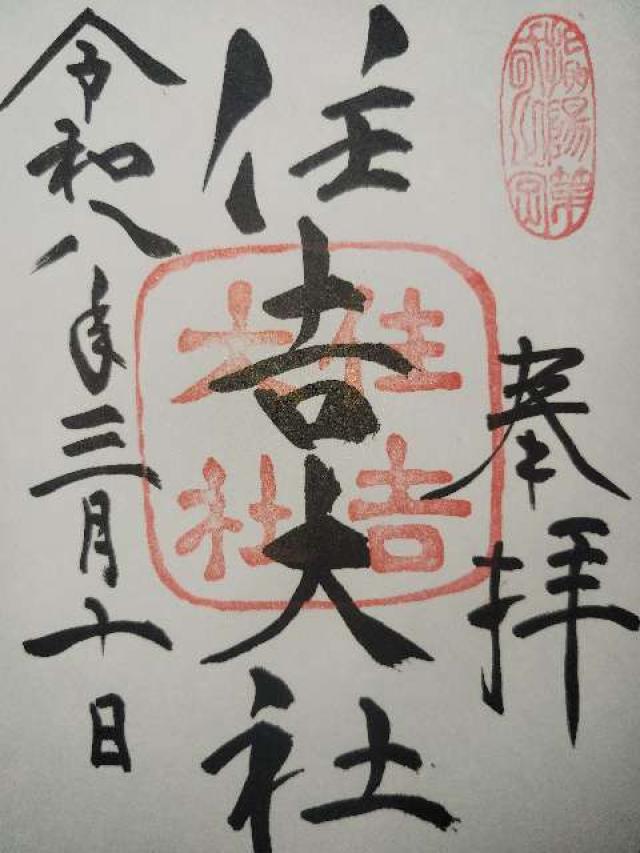 奉拝
住吉大社
住吉
大社
令和八年三月十日